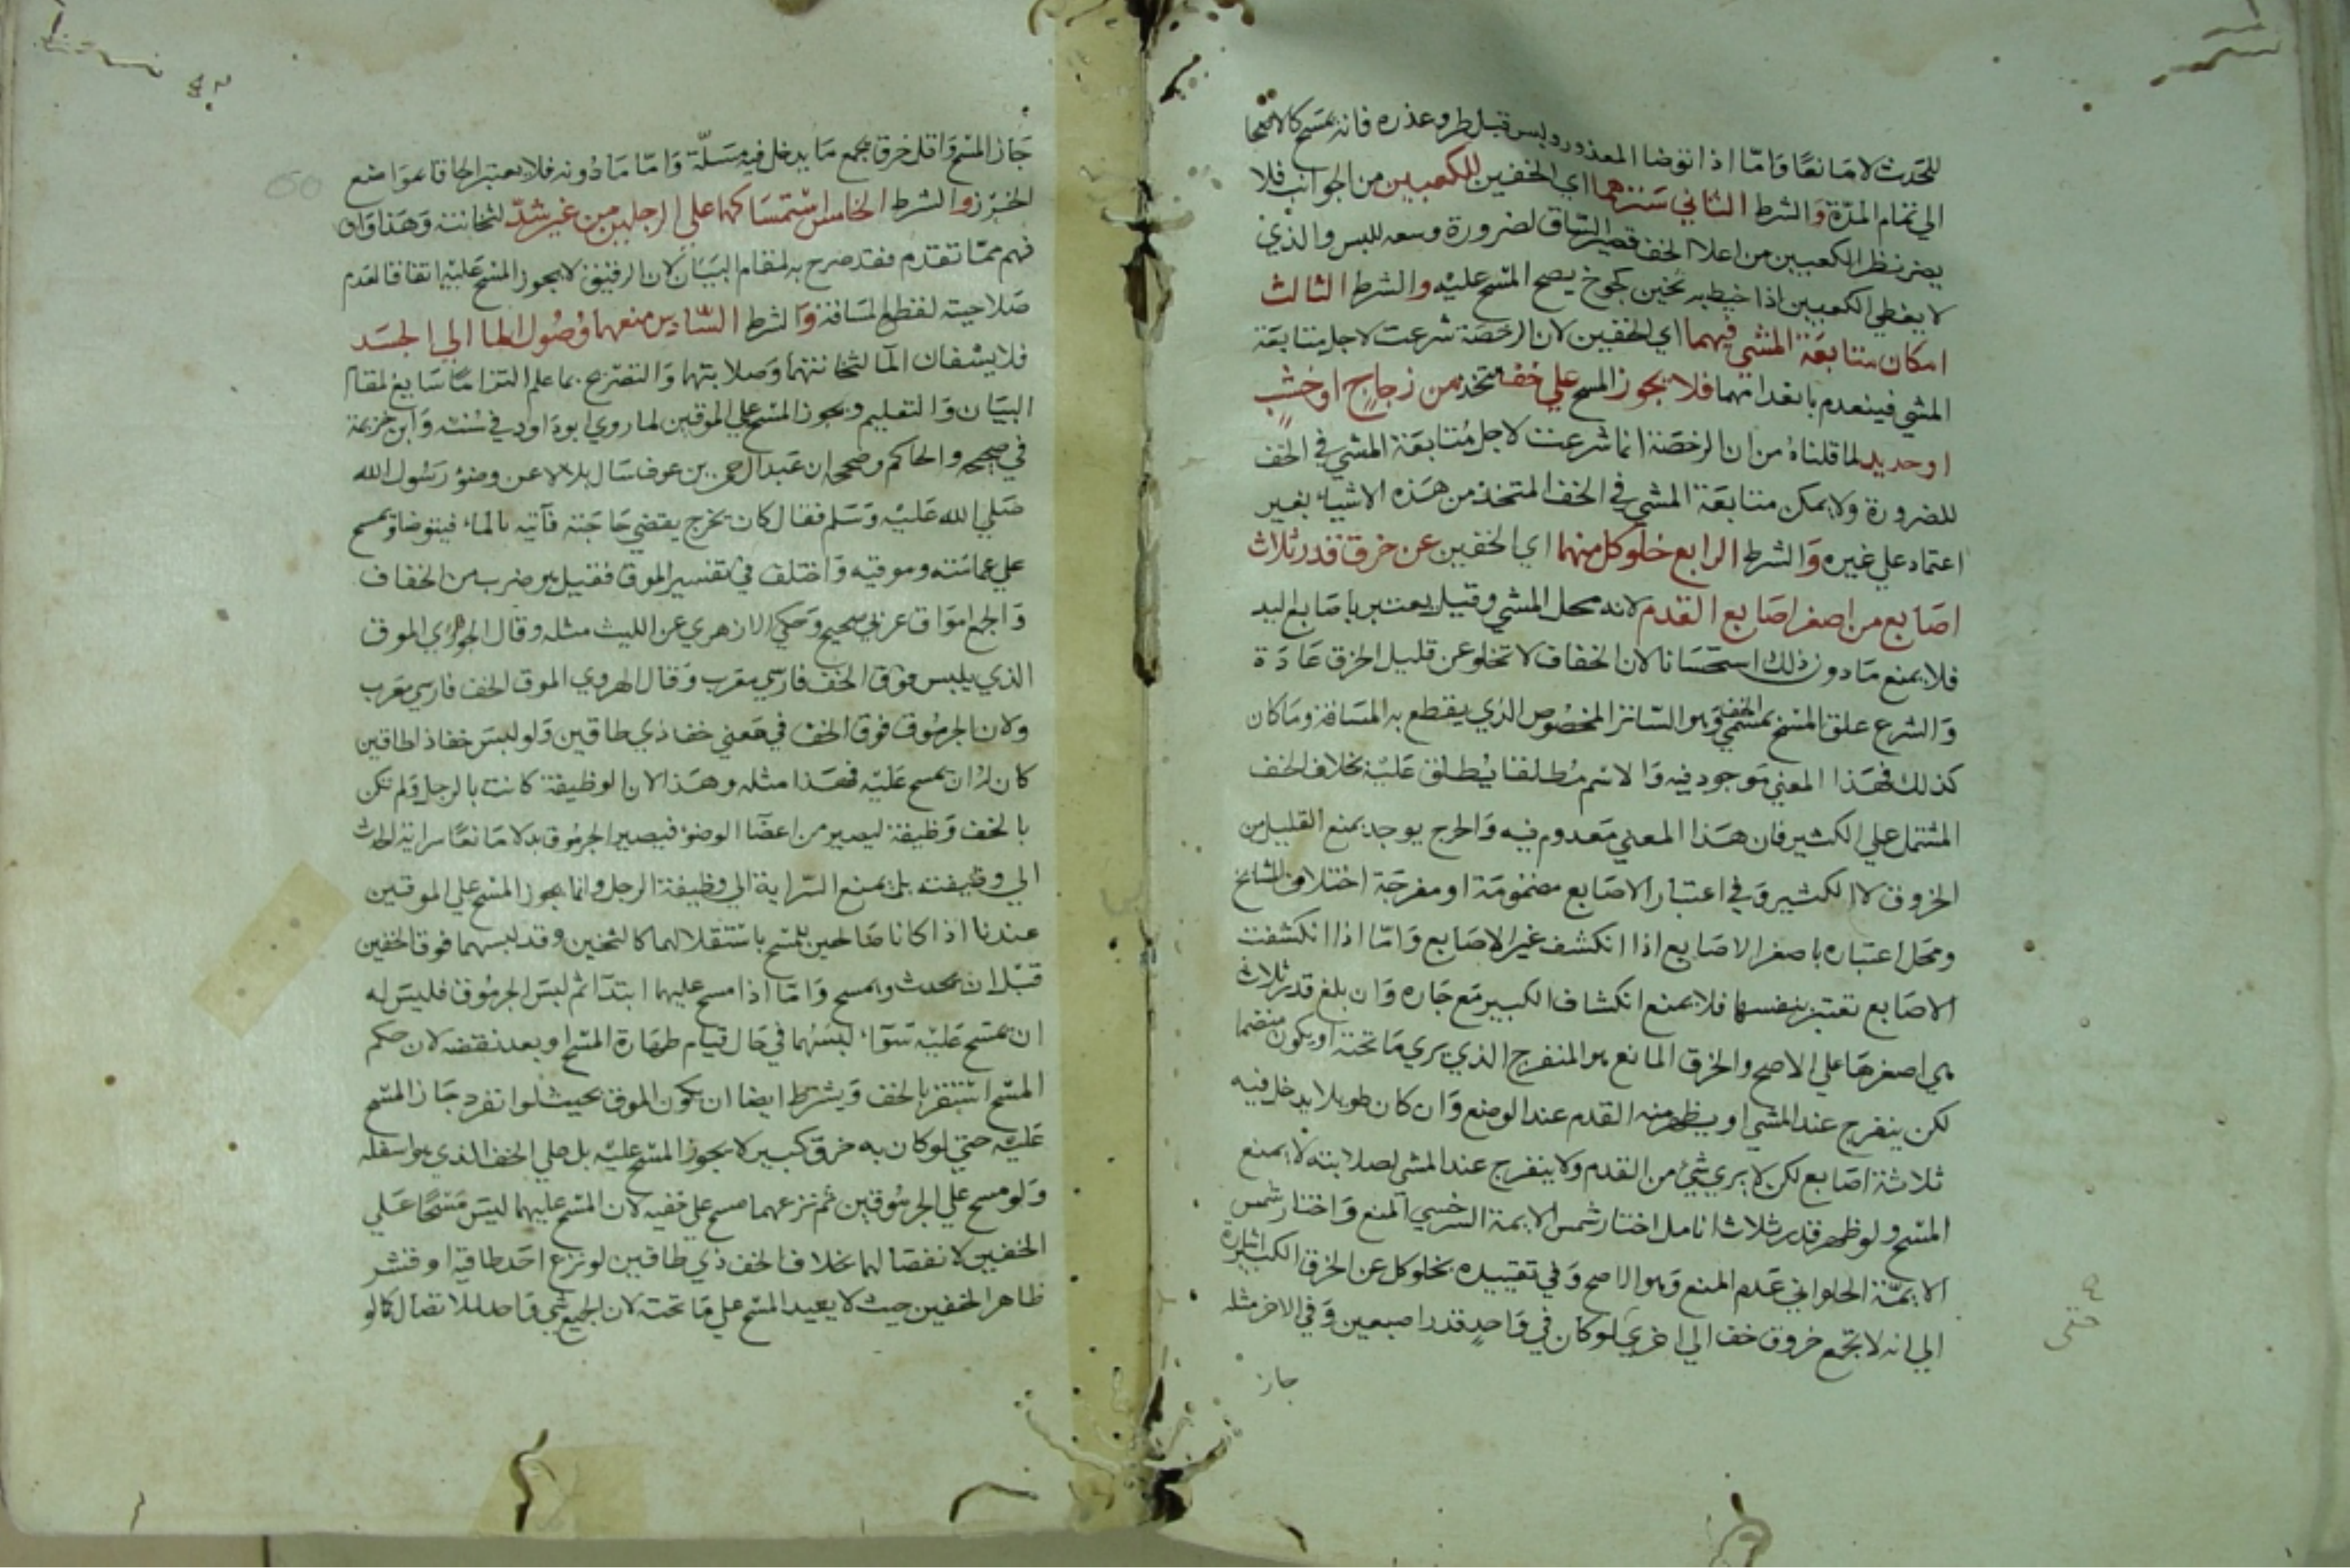 للحدث لا مانعا واما اذا توضا المعذور ولبس قبل طرو عذره فانه يمسح كالاصحا
الي تمام المدة والشرط الثاني سترهما اي الخفين للكعبين من الجوانب فلا
يضر نظر الكعبين من اعلا الخف قصير الساق لضرورة وسعه للبس والذي
لا يغطي الكعبين اذا خيط به ثخين كجوخ يصح المسح عليه والشرط الثالث
امكان متابعة المشي فيهما اي الخفين لان الرخصة شرعت لاجل متابعة
المشي فينعدم بانعدامهما فلا يجوز المسح علي خف متخذ من زجاج او خشب
او حديد لما قلناه من ان الرخصة انما شرعت لاجل متابعة المشي في الخف
للضرورة ولا يمكن متابعة المشي في الخف المتخذ من هذه الاشياء بغير
اعتماد علي غيره والشرط الرابع خلو كل منهما اي الخفين عن خرق قدر ثلاث
اصابع من اصغر اصابع القدم لانه محل المشي وقيل يعتبر باصابع اليد
فلا يمنع ما دون ذلك استحسانا لان الخفاف لا تخلو عن قليل الخرق عادة
والشرع علق المسح بمسمي الخف وهو الساتر المخصوص الذي يقطع به المسافة وما كان
كذلك فهذا المعني موجود فيه والاسم مطلقا يطلق عليه بخلاف الخف
المشتمل علي الكثير فان هذا المعني معدوم فيه والحرج يوجد بمنع القليل من
الخروق لا الكثير وفي اعتبار الاصابع مضمومة او مفرجة اختلاف المشايخ
ومحل اعتباره باصغر الاصابع اذا انكشف غير الاصابع واما اذا انكشفت
الاصابع تعتبر بنفسها فلا يمنع انكشاف الكبير مع جاره وان بلغ قدر ثلاث
هي اصغرها علي الاصح والخرق المانع هو المنفرج الذي يري ما تحته او يكون منضما
لكن ينفرج عند المشي او يظهر منه القدم عند الوضع وان كان طويلا يدخل فيه
ثلاثة اصابع لكن لا يري شئ من القدم ولا ينفرج عند المشي لصلابته لا يمنع
المسح ولو ظهر قدر ثلاث انامل اختار شمس الايمة السرخسي المنع واختار شمس
الايمة الحلواني عدم المنع وهو الاصح وفي تقييده بخلو كل عن الخرق الكبير اشارة
الي انه لا تجمع خروق خف الي اخري لو كان في واحد قدر اصبعين وفي الاخر مثله
جاز
حتي
جاز المسح واقل خرق يجمع ما يدخل فيه مسلة واما ما دونه فلا يعتبر الحاقا بمواضع
الخرز والشرط الخامس استمساكهما علي الرجلين من غير شد لثخانته وهذا وان
فهم مما تقدم فقد صرح به لمقام البيان لان الرفيق لا يجوز المسح عليه اتفاقا لعدم
صلاحيته لقطع المسافة والشرط السادس منعهما وصول الما الي الجسد
فلا يشفان الما لثخانتهما وصلابتهما والتصريح بما علم التزاما سايغ لمقام
البيان والتعليم ويجوز المسح علي الموقين لما روي ابو داود في سننه وابن خزيمة
في صحيحه والحاكم وصححه ان عبد الرحمن بن عوف سال بلالا عن وضو رسول الله
صلي الله عليه وسلم فقال كان يخرج يقضي حاجته فآتيه بالماء فيتوضا ويمسح
علي عمامته وموقيه واختلف في تفسير الموق فقيل هو ضرب من الخفاف
والجمع امواق عربي صحيح وحكي الازهري عن الليث مثله وقال الجوهري الموق
الذي يلبس فوق الخف فارسي معرب وقال الهروي الموق الخف فارسي معرب
ولان الجرموق فوق الخف في معني خف ذي طاقين ولو لبس خفا ذا طاقين
كان له ان يمسح عليه فهذا مثله وهذا لان الوظيفة كانت بالرجل ولم تكن
بالخف وظيفة ليصير من اعضا الوضو فيصير الجرموق بدلا مانعا سراية الحدث
الي وظيفته بل يمنع السراية الي وظيفة الرجل وانما يجوز المسح علي الموقين
عندنا اذا كانا صالحين للمسح باستقلالهما كالثخين وقد لبسهما فوق الخفين
قبل ان يحدث ويمسح واما اذا مسح عليهما ابتدا ثم لبس الجرموق فليس له
ان يمسح عليه سواء لبسهما في حال قيام طهارة المسح او بعد نقضه لان حكم
المسح استقر بالخف ويشترط ايضا ان يكون الموق بحيث لو انفرد جاز المسح
عليه حتي لو كان به خرق كبير لا يجوز المسح عليه بل علي الخف الذي هو اسفله
ولو مسح علي الجرموقين ثم نزعهما مسح علي خفيه لان المسح عليهما ليس مسحا علي
الخفين لانفصالهما بخلاف الخف ذي طاقين لو نزع احد طاقيه او قشر
ظاهر الخفين حيث لا يعيد المسح علي ما تحته لان الجميع شي واحد للاتصال كما لو